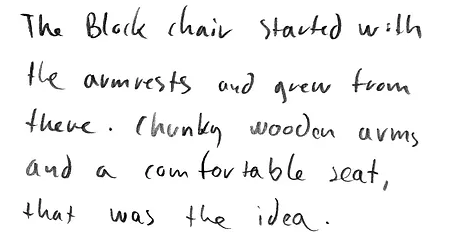 The Block chair started with
the armrests and grew from
there. Chunky wooden arms
and a comfortable seat,
that was the idea.